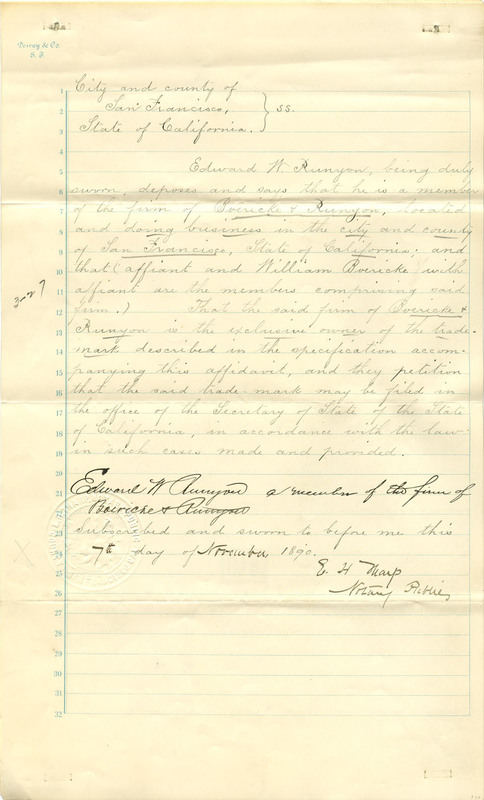 Dewey & Co.
S. F.
1 City and county of
2 San Francisco, } ss.
3 State of California.
4
5 Edward W. Runyon, being duly
6 sworn, deposes and says that he is a member
7 of the firm of Boericke & Runyon, located
8 and doing business in the city and county
9 of San Francisco, State of California; and
10 that (affiant and William Boericke with
11 affiant are the members comprising said
12 firm.) That the said firm of Boericke &
13 Runyon is the exclusive owner of the trade-
14 mark described in the specification accom-
15 panying this affidavit, and they petition
16 that the said trade-mark may be filed in
17 the office of the Secretary of State of the State
18 of California, in accordance with the law
19 in such cases made and provided.
20
21 Edward W Runyon a member of the firm of
22 Boericke & Runyon
23 Subscribed and sworn to before me this
24 7th day of November 1890.
25 E. H. Tharp
26 Notary Public
27
28
29
30
31
32
3-27